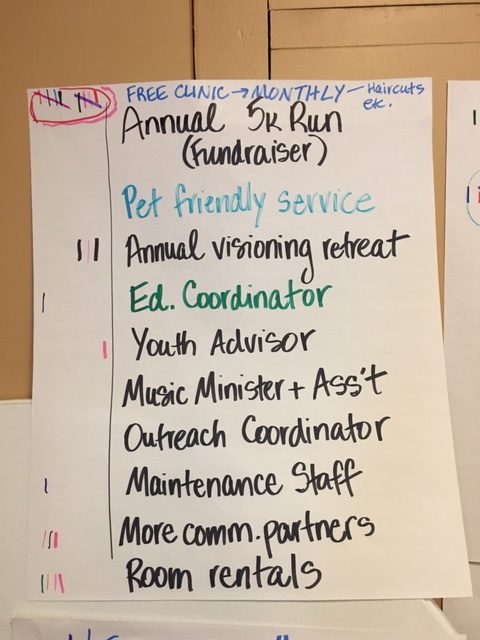 FREE CLINIC → MONTHLY – Haircuts
etc.
Annual 5K Run
(Fundraiser)
Pet friendly service
Annual visioning retreat
Ed. Coordinator
Youth Advisor
Music Minister + Ass't
Outreach Coordinator
Maintenance Staff
More comm. partners
Room rentals